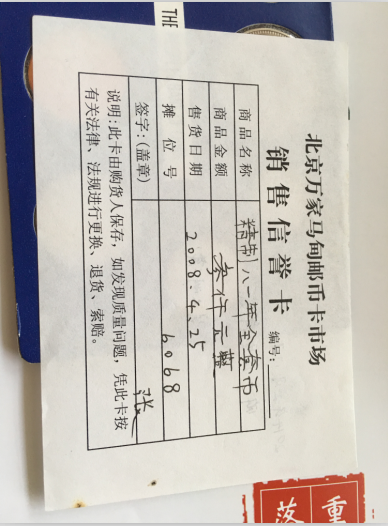 THE
北京万家马甸邮币卡市场
销售信誉卡
编号:
商品名称 精制八一年全套币
商品金额 叁仟元整
售货日期 2008.4.25
摊位号 6068
签字:(盖章) 张
说明:此卡由购货人保存,如发现质量问题,凭此卡按
有关法律、法规进行更换、退货、索赔。
重
落